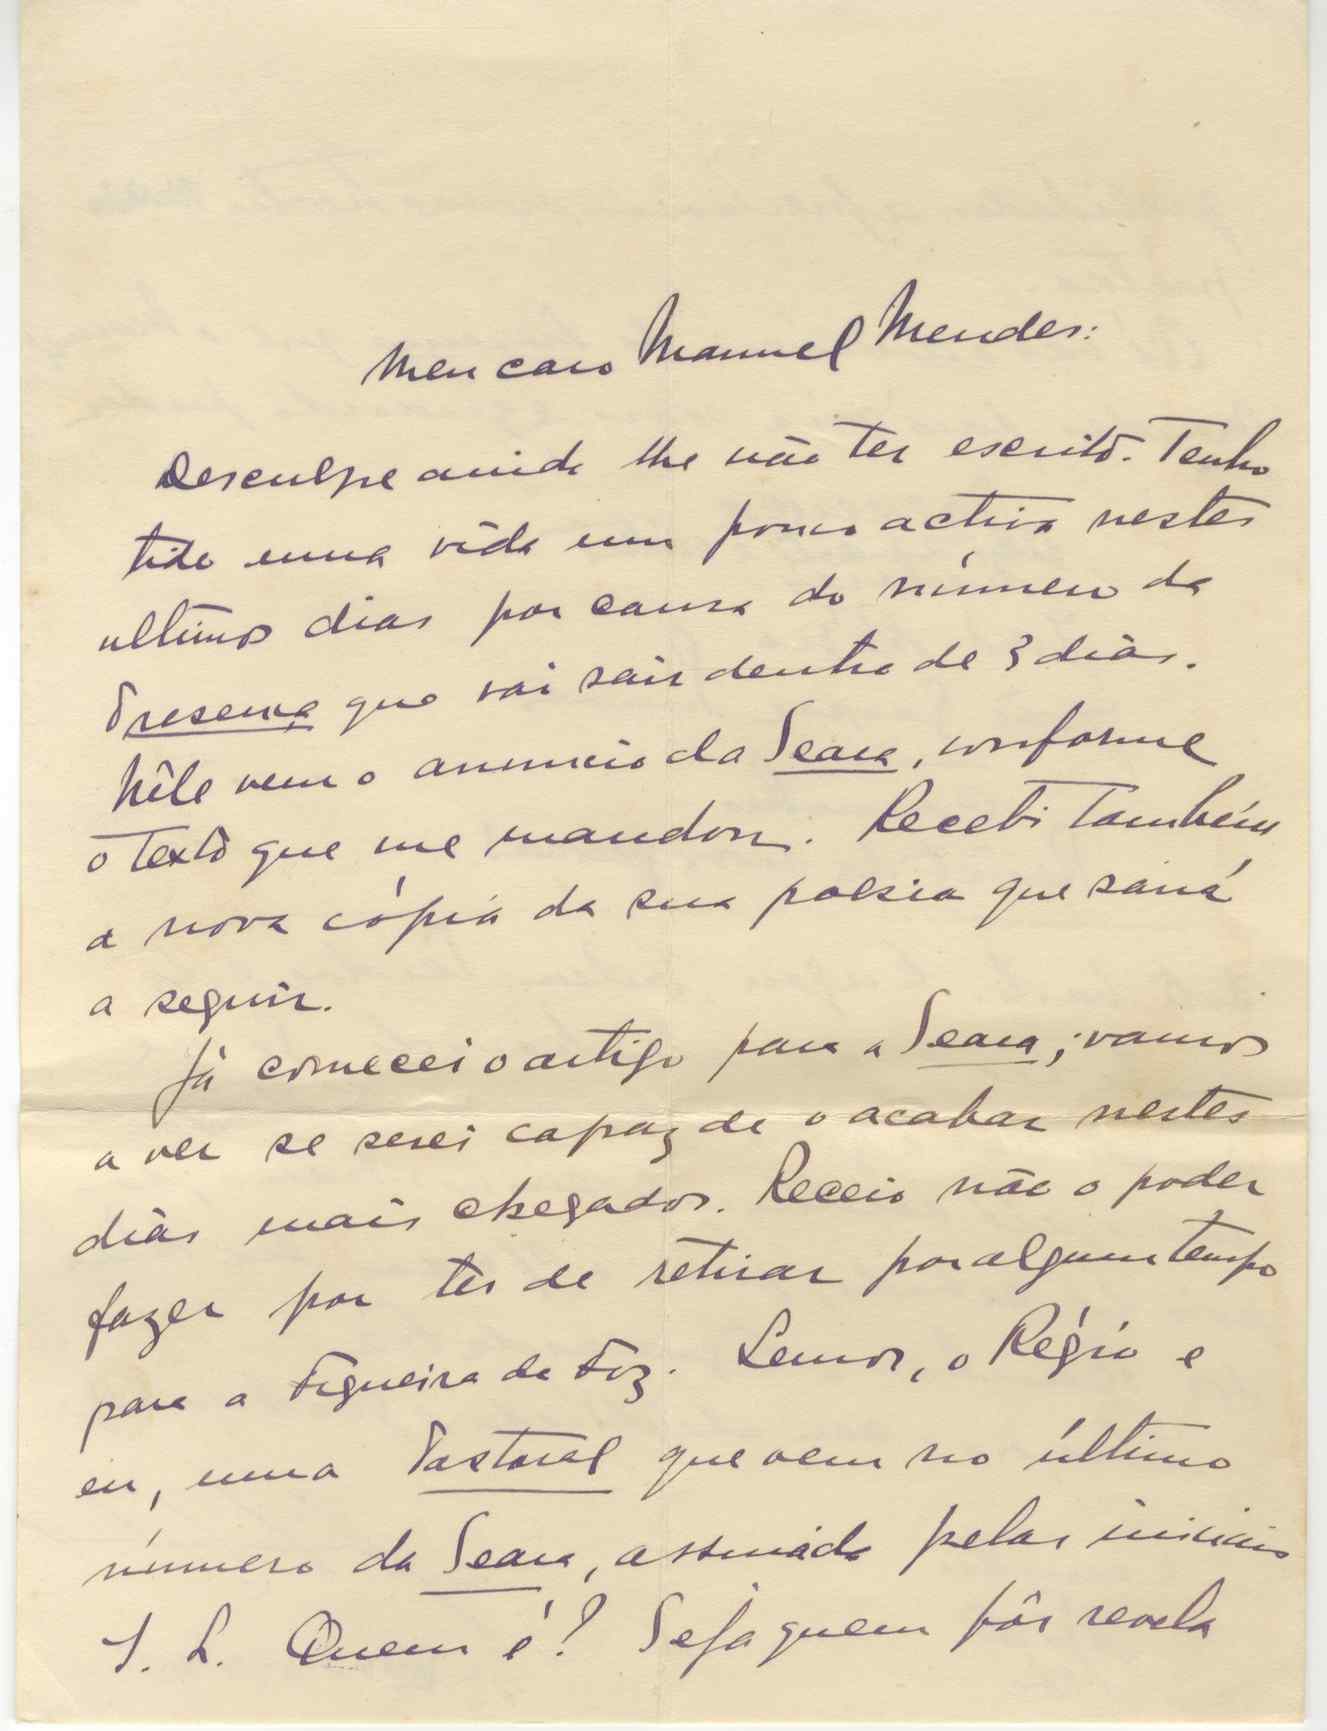 Meu caro Manuel Mendes:
Desculpe ainda lhe não ter escrito. Tenho
tido uma vida um pouco activa nestes
ultimos dias por causa do número da
Presença que vai sair dentro de 3 dias.
Nêle vem o anuncio da Seara, conforme
o texto que me mandou. Recebi também
a nova cópia da sua poesia que sairá
a seguir.
Já comecei o artigo para a Seara; vamos
a ver se serei capaz de o acabar nestes
dias mais chegados. Receio não o poder
fazer por ter de retirar por algum tempo
para a Figueira da Foz. Lemos, o Régio e
eu, uma Pastoral que vem no último
número da Seara, assinada pelas iniciais
J. L. Quem é? Seja quem fôr revela